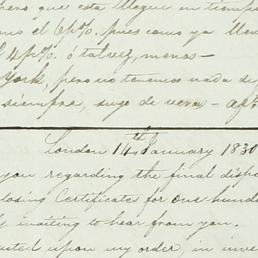 pero que esta llegue en tiempo
el 6p%. pues como ya
el 4p%. ó tal vez, menos—
York, pero no tenemos nada de
siempre, suyo de veras—
London 14th January 1830
you regarding the final dispo
losing Certificates for one hund
waiting to hear from you.
upon my order, in inve